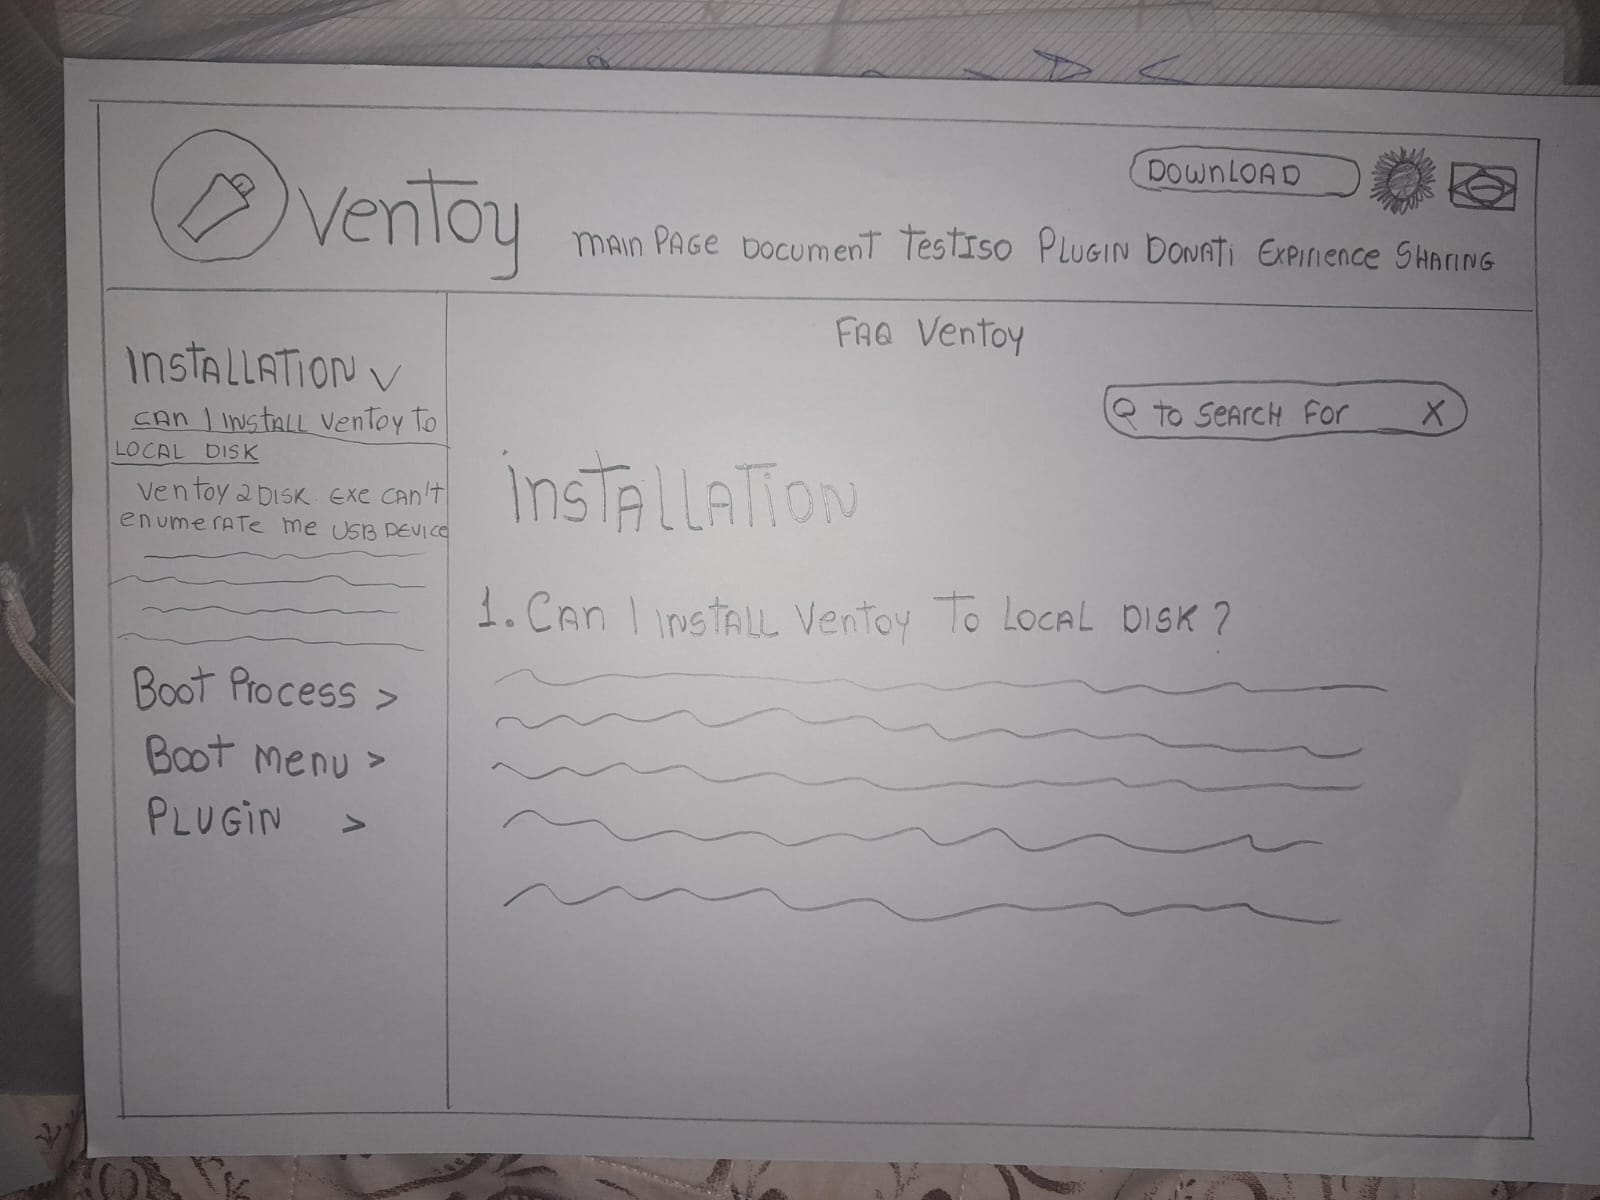 Ventoy
DOWNLOAD
MAIN PAGE DOCUMENT TestIso PLUGIN DONATi EXPIRIENCE SHARING
INSTALLATION
CAN I INSTALL VENTOY TO
LOCAL DISK
VENTOY 2 DISK. EXE CAN't
ENUMERATE ME USB DEVICE
Boot Process >
Boot Menu >
PLUGiN >
FAQ Ventoy
TO SEARCH FOR X
iNSTALLATiON
1. CAN I INSTALL VENTOY TO LOCAL DISK?